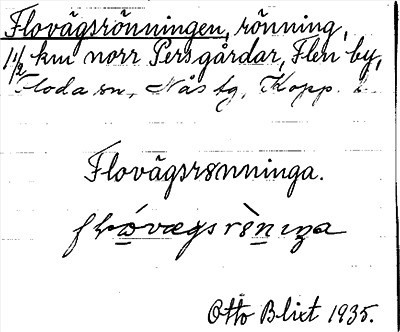 Flovägsrönningen, rönning,
1 1/2 km norr Persgårdar, Flen by,
Floda sn, Nås tg, Kopp. l.
Flovägsrønninga.
Otto Blixt 1935.